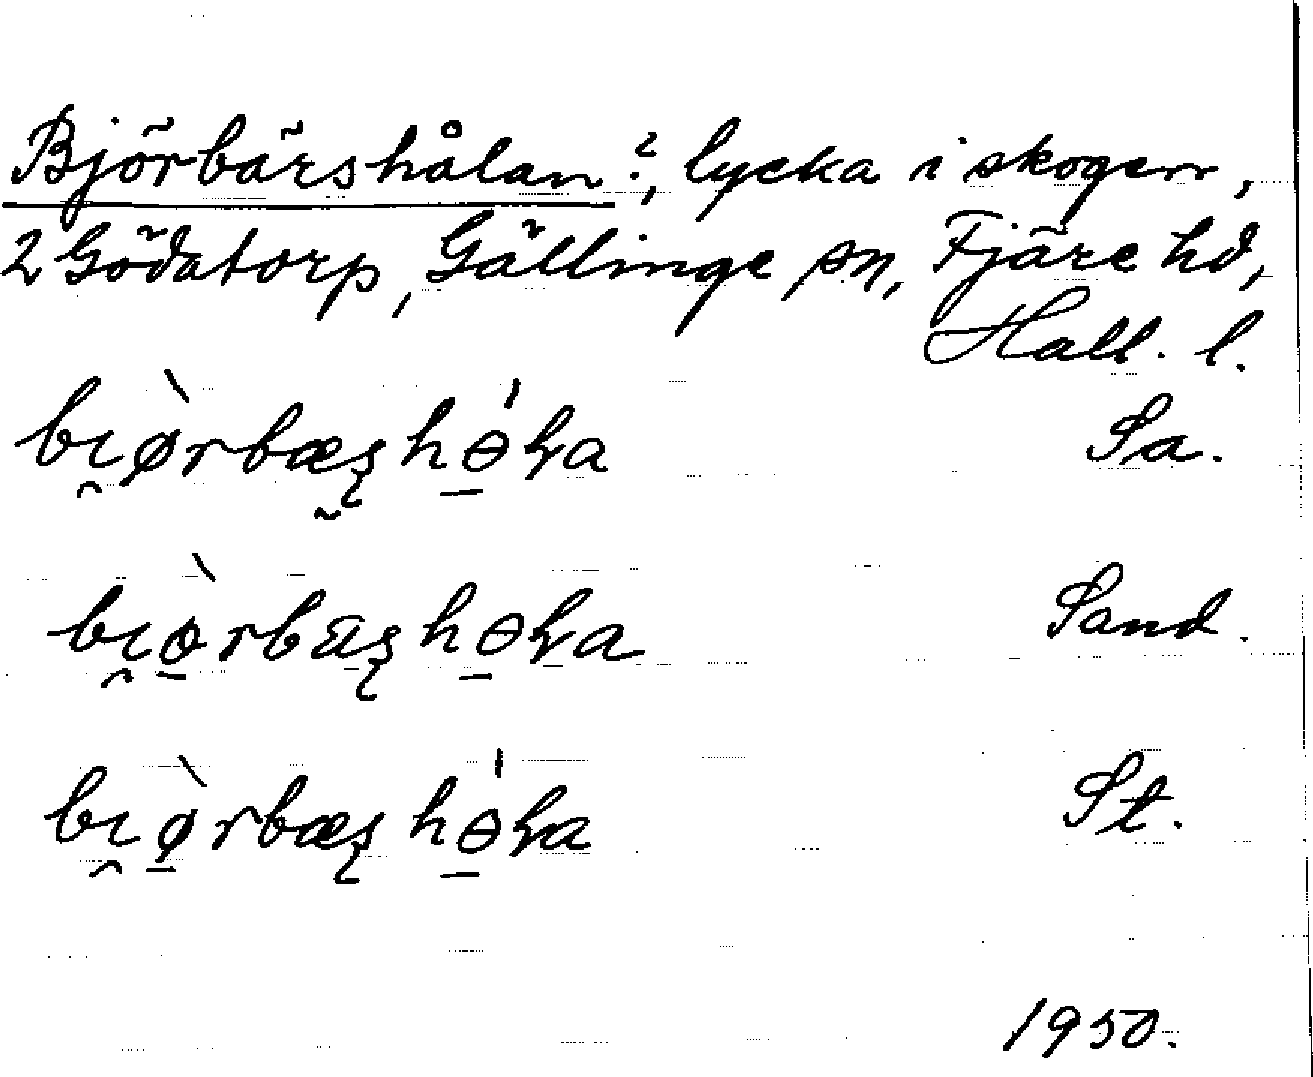 Björbärshålan?, lycka i skogen,
2 Gödatorp, Gällinge sn, Fjäre hd,
Hall. l.
bı̯ø̀rbæʂhɵ̠́ɽa Sa.
bı̯ò̠rbaʂhɵ̠ɽa Sand.
bı̯ø̠̀rbæʂhɵ̠́ɽa St.
1950.